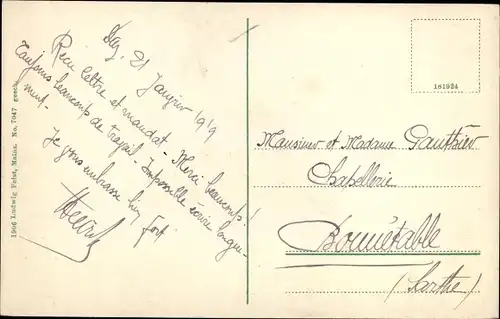 21 Janvier 1919
Reçu lettre et mandat - Merci beaucoup!
Toujours beaucoup de travail. Impossible écrire longue-
ment.
Je vous embrasse bien fort
1906 Ludwig Feist, Mainz. No. 7047 gesch.
181924
Monsieur et Madame Gauthier
Chapellerie
Bonnétable
(Sarthe)